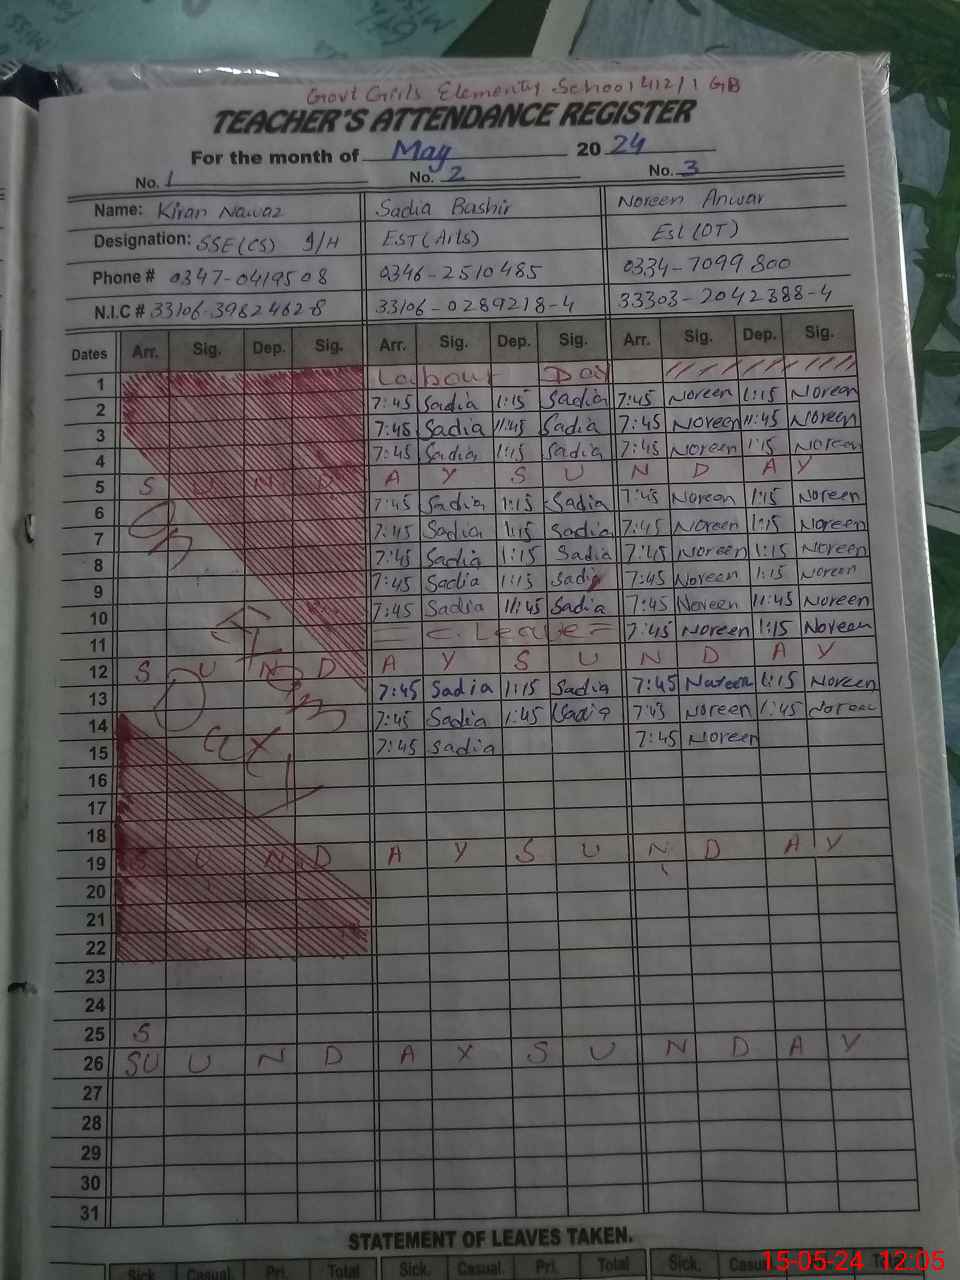 Govt Girls Elementy School 412/1 GB
TEACHER'S ATTENDANCE REGISTER
For the month of May 20 24
No. 1 No. 2 No. 3
Name: Kiran Nawaz Sadia Bashir Noreen Anwar
Designation: SSE(CS) I/H EST(Arts) EST(OT)
Phone # 0347-0419508 0346-2510485 0334-7099800
N.I.C # 33106-3982462-8 33106-0289218-4 33303-2042388-4
Dates Arr. Sig. Dep. Sig. Arr. Sig. Dep. Sig. Arr. Sig. Dep. Sig.
1 Labour Day
2 7:45 Sadia 1:15 Sadia 7:45 Noreen 1:15 Noreen
3 7:45 Sadia 11:45 Sadia 7:45 Noreen 11:45 Noreen
4 7:45 Sadia 1:15 Sadia 7:45 Noreen 1:15 Noreen
5 S U N D A Y S U N D A Y
6 7:45 Sadia 1:15 Sadia 7:45 Noreen 1:15 Noreen
7 7:45 Sadia 1:15 Sadia 7:45 Noreen 1:15 Noreen
8 7:45 Sadia 1:15 Sadia 7:45 Noreen 1:15 Noreen
9 7:45 Sadia 1:15 Sadia 7:45 Noreen 1:15 Noreen
10 7:45 Sadia 11:45 Sadia 7:45 Noreen 11:45 Noreen
11 = C. Leave = 7:45 Noreen 1:15 Noreen
12 S U N D A Y S U N D A Y
13 7:45 Sadia 1:15 Sadia 7:45 Noreen 1:15 Noreen
14 7:45 Sadia 1:45 Sadia 7:45 Noreen 1:45 Noreen
15 7:45 Sadia 7:45 Noreen
16
17
18
19 U N D A Y S U N D A Y
20
21
22
23
24
25 S
26 SU U N D A Y S U N D A Y
27
28
29
30
31
STATEMENT OF LEAVES TAKEN.
Sick. Casual. Pri. Total Sick. Casual. Pri. Total Sick. Casual
15-05-24 12:05